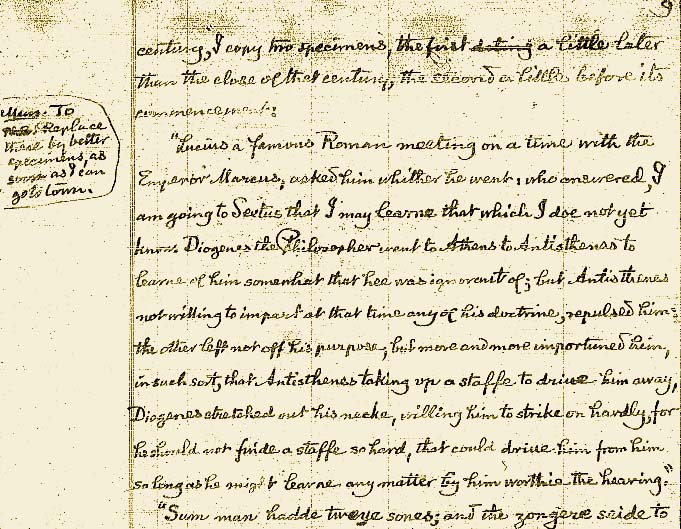 9
century, I copy two specimens, the first a little later
than the close of that century, the second a little before its
commencement:
Mem. To
Replace
these by better
specimens, as
soon as I can
go to town.
"Lucius a famous Roman meeting on a time with the
Emperor Marcus, asked him whither he went; who answered, I
am going to Sextus that I may learne that which I doe not yet
know. Diogenes the Philosopher went to Athens to Antisthenes to
learne of him somewhat that hee was ignorant of; but Antisthenes
not willing to impart at that time any of his doctrine, repulsed him:
the other left not off his purpose, but more and more importuned him,
in such sort, that Antisthenes taking up a staffe to driue him away,
Diogenes stretched out his necke, willing him to strike on hardly, for
he should not finde a staffe so hard, that could driue him from him
so long as he might learne any matter by him worthie the hearing."
"Sum man hadde tweye sones; and the zongere seide to